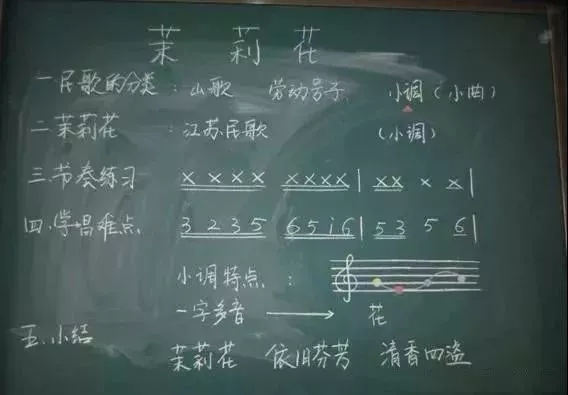 茉莉花
一民歌的分类：山歌 劳动号子 小调（小曲）
二茉莉花：江苏民歌（小调）
三.节奏练习 x x x x x x x x | x x x x |
四.学唱难点 3 2 3 5 6 5 i 6 | 5 3 5 6 |
小调特点：
一字多音 → 花
五.小结
茉莉花 依旧芬芳 清香四溢